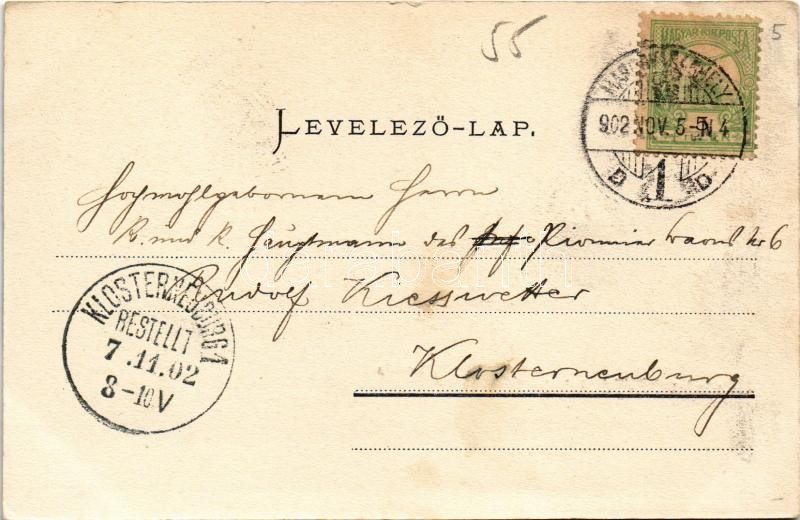 55
5
MAGYAR KIR. POSTA
902 NOV. 5 N 4
D 1 D
LEVELEZŐ-LAP.
Hochwohlgebornem Herrn
K. und k. Hauptmann des Pionnier
Rudolf Kiesswetter
Klosterneuburg
KLOSTERNEUBURG 1
BESTELLT
7.11.02
8-10V